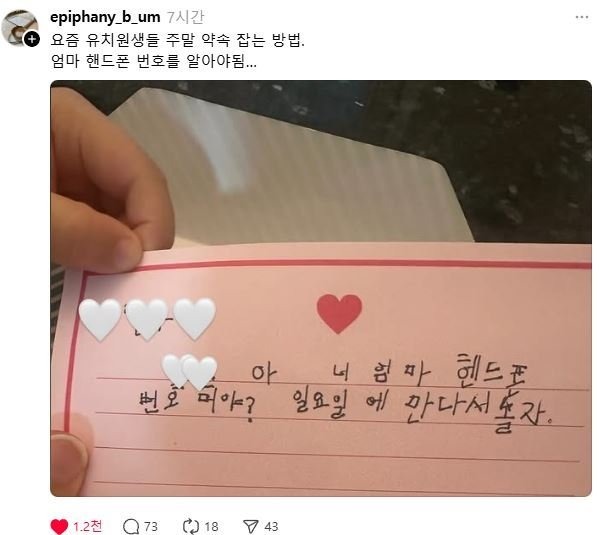 epiphany_b_um 7시간
요즘 유치원생들 주말 약속 잡는 방법.
엄마 핸드폰 번호를 알아야됨...
아 너 엄마 헨드폰
번호 머야? 일요일에 만다서 놀자.
1.2천 73 18 43